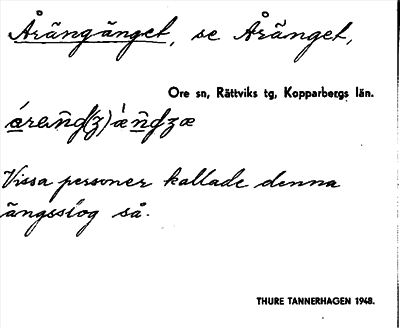 Årängänget, se Åränget,
Ore sn, Rättviks tg, Kopparbergs län.
Vissa personer kallade denna
ängsslog så.
THURE TANNERHAGEN 1948.